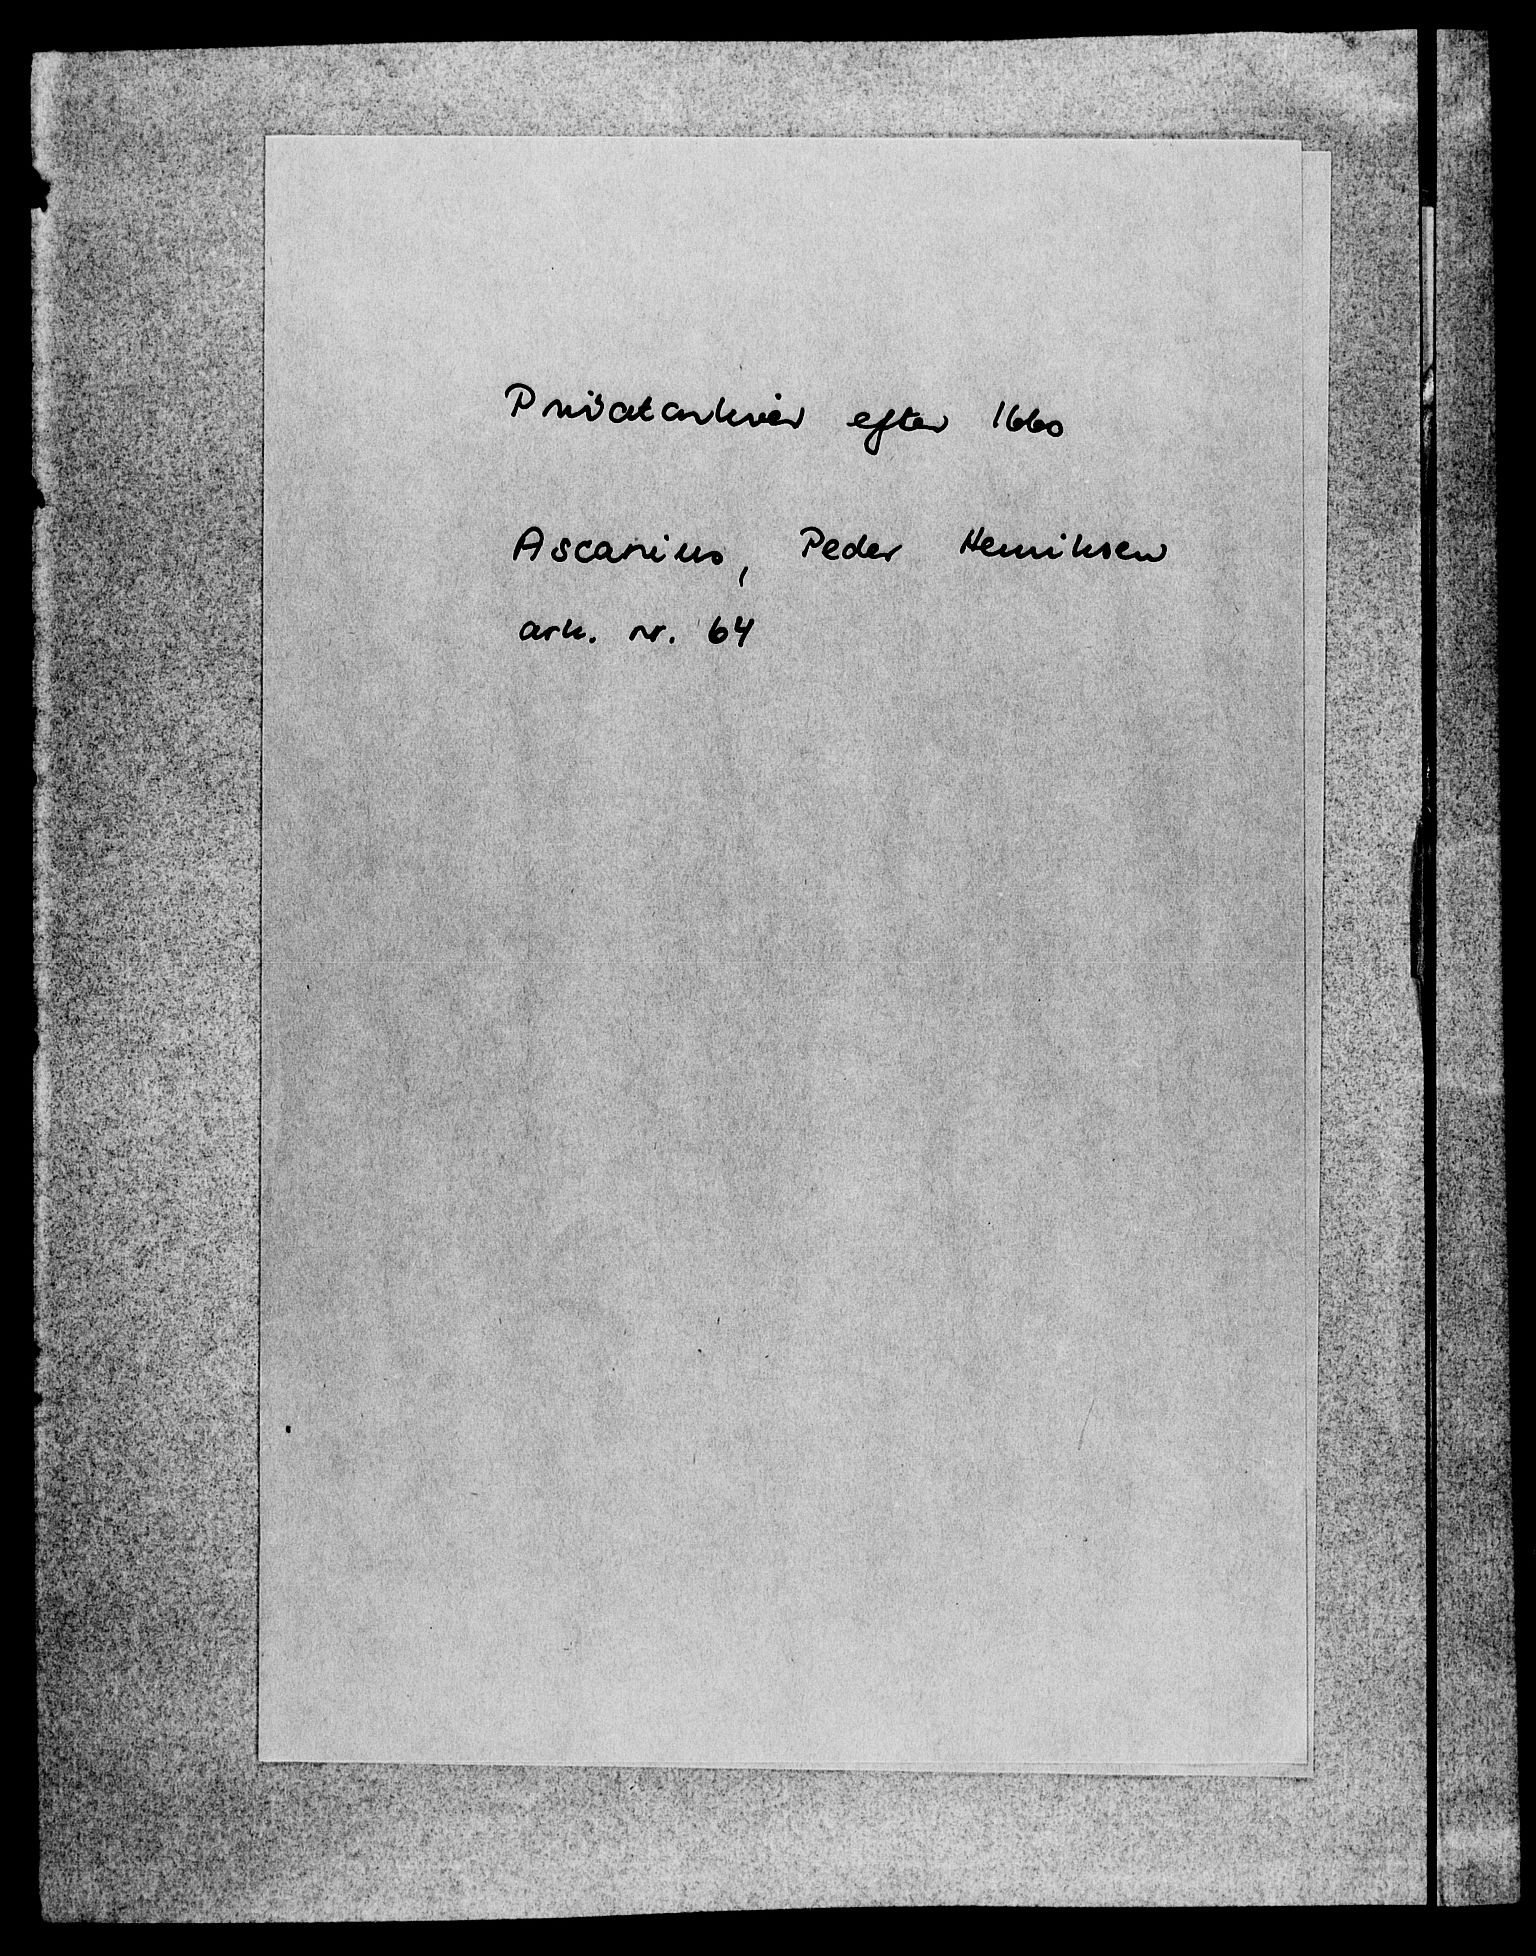 Privatarkiver efter 1660
Ascanius, Peder Henriksen
ark. nr. 64